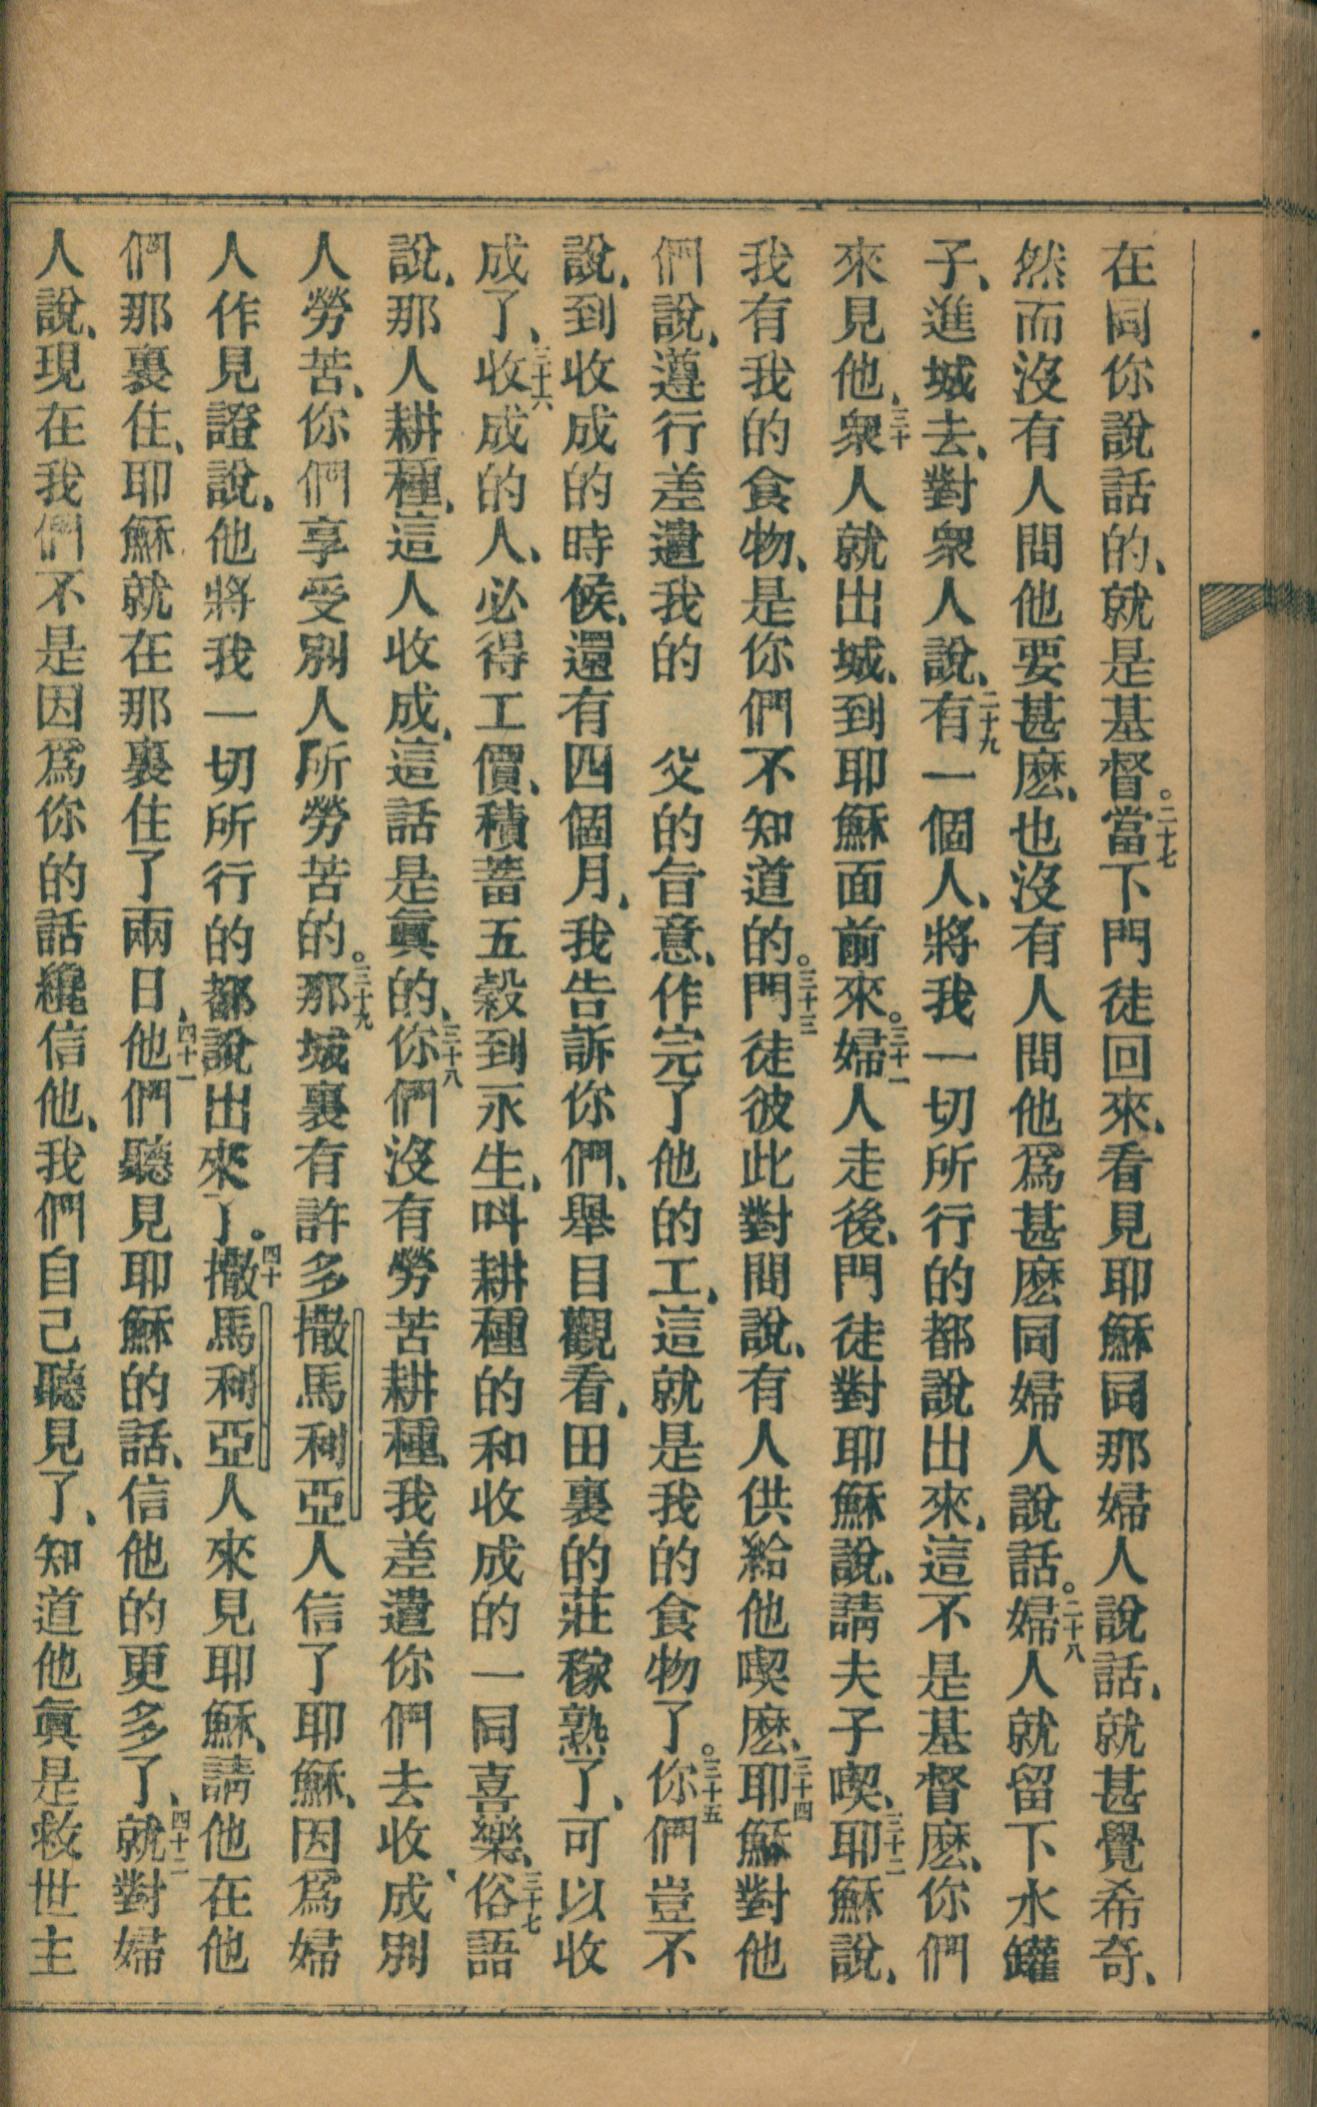 在同你說話的、就是基督。二十七當下門徒回來、看見耶穌同那婦人說話、就甚覺希奇、
然而沒有人問他要甚麽、也沒有人問他爲甚麽同婦人說話。二十八婦人就留下水罐
子、進城去、對衆人說、二十九有一個人、將我一切所行的都說出來、這不是基督麽、你們
來見他、三十衆人就出城、到耶穌面前來。三十一婦人走後、門徒對耶穌說、請夫子喫、三十二耶穌說、
我有我的食物、是你們不知道的。三十三門徒彼此對問說、有人供給他喫麽、三十四耶穌對他
們說、遵行差遣我的　父的旨意、作完了他的工、這就是我的食物了。三十五你們豈不
說、到收成的時候、還有四個月、我告訴你們、舉目觀看、田裏的莊稼熟了、可以收
成了、三十六收成的人、必得工價、積蓄五穀到永生、叫耕種的和收成的一同喜樂、三十七俗語
說、那人耕種、這人收成、這話是眞的、三十八你們沒有勞苦耕種、我差遣你們去收成、別
人勞苦、你們享受別人所勞苦的。三十九那城裏有許多撒馬利亞人信了耶穌、因爲婦
人作見證說、他將我一切所行的都說出來了。四十撒馬利亞人來見耶穌、請他在他
們那裏住、耶穌就在那裏住了兩日、四十一他們聽見耶穌的話、信他的更多了、四十二就對婦
人說、現在我們不是因爲你的話纔信他、我們自己聽見了、知道他眞是救世主